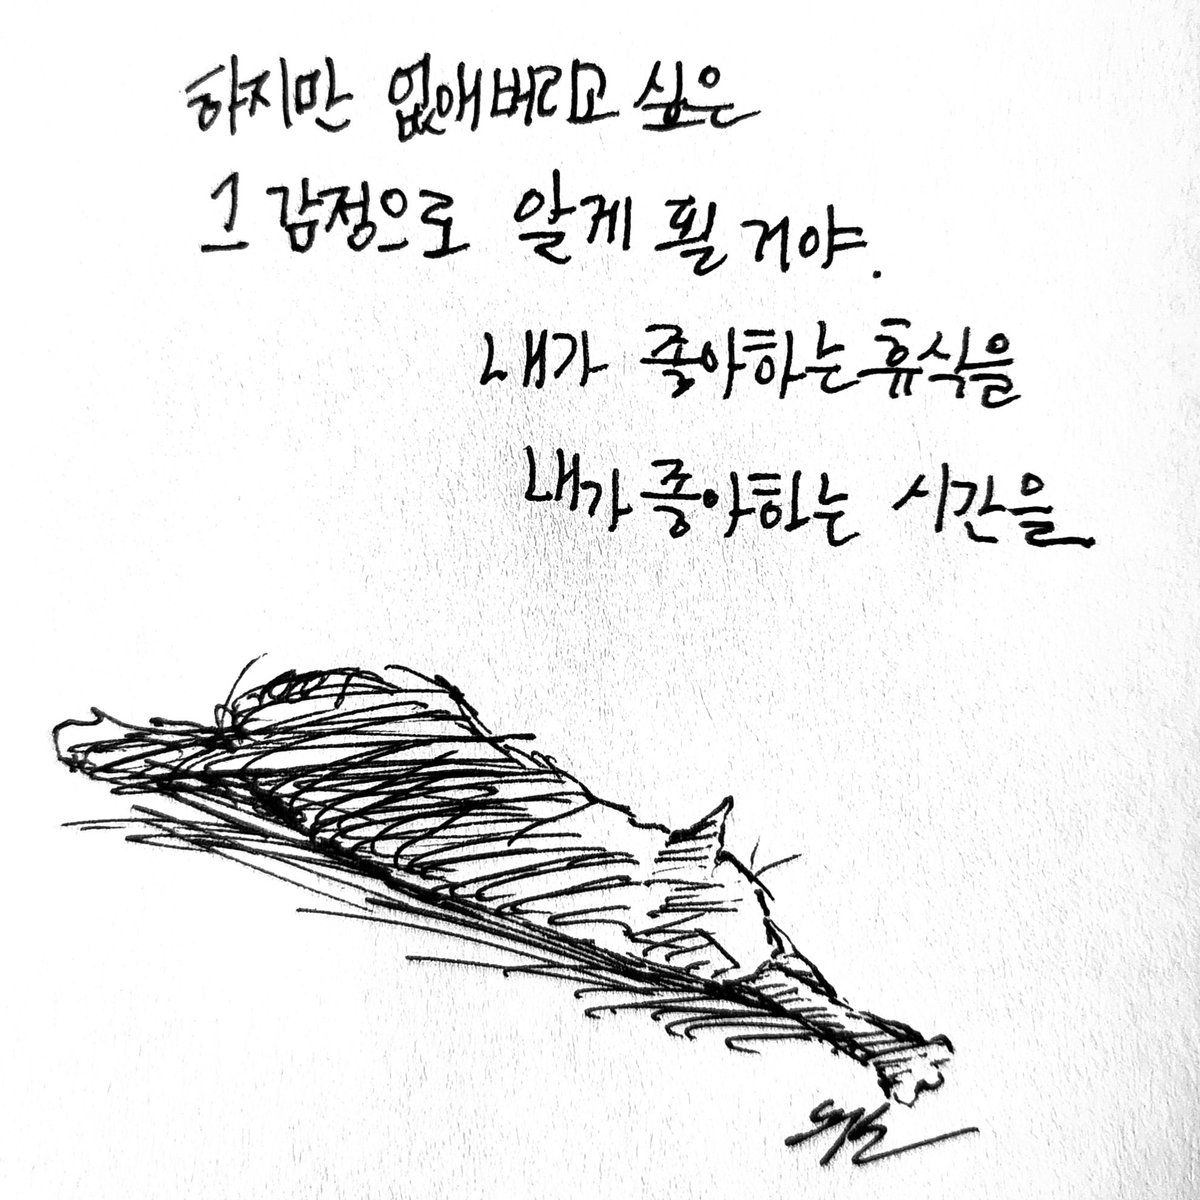 하지만 없애버리고 싶은
그 감정으로 알게 될 거야.
내가 좋아하는 휴식을
내가 좋아하는 시간을